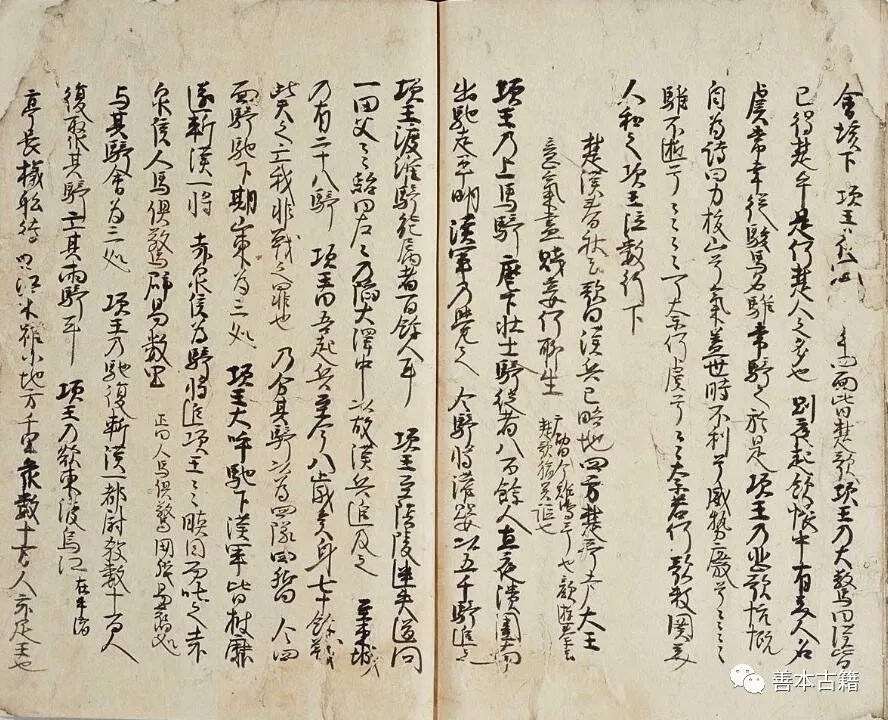 會垓下 項王 面皆楚歌項王乃大驚曰漢皆
已得楚乎是何楚人之多也 則夜起飲帳中有美人名
虞常幸從駿馬名騅常騎之於是項王乃悲歌忼慨
自為詩曰力拔山兮氣盖世時不利兮威勢廢兮ミミミ
騅不逝兮ミミミミ可奈何虞兮ミミ奈若何歌数闋美
人和之項王泣数行下
楚漢春秋云歌曰漢兵已略地四方楚歌声大王
意氣盡賤妾何聊生
項王乃上馬騎麾下壮士騎從者八百餘人直夜潰圍南
出馳走平明漢軍乃覺之 令騎将灌嬰以五千騎追之
項王渡淮騎能属者百餘人耳 項王至陰陵迷失道問
一田父ミミ紿曰左ミ乃陥大澤中以故漢兵追及之 至東城
乃有二十八騎 項王曰吾起兵至今八歳矣身七十餘戰
此天之亡我非戰之罪也 乃分其騎以為四隊四嚮 令四
面騎馳下期山東為三処 項王大呼馳下漢軍皆披靡
遂斬漢一将 赤泉侯為騎将追項王ミミ瞋目而叱之赤
泉侯人馬俱驚辟易数里
正曰人馬俱驚開張易舊処
与其騎會為三処 項王乃馳復斬漢一都尉殺数十百人
復聚其騎亡其兩騎耳 項王乃欲東渡烏江
亭長檥舩待 曰江東雖小地方千里衆数十万人亦足王也